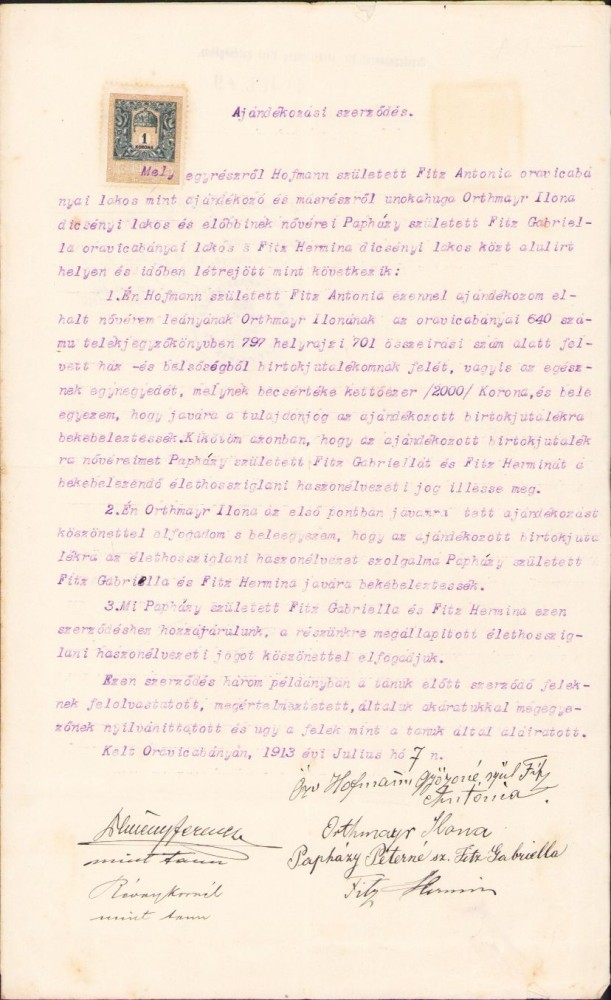 1
KORONA
Ajándékozási szerződés.
Mely egyrészről Hofmann született Fitz Antonia oraricabá
nyai lakos mint ajándékozó és másrészről unokahuga Orthmayr Ilona
dicsényi lakos és előbbinek nővérei Papházy született Fitz Gabriel-
lla oravicabányai lakós s Fitz Hermina dicsényi lakos közt alulirt
helyen és időben létrejött mint következik:
1.Én Hofmann született Fitz Antonia ezennel ajándékozom el-
halt nővérem leányának Orthmayr Ilonának az oravicabányai 640 szá-
mu telekjegyzőkönyvben 797 helyrajzi 701 összeirási szám alatt fel-
vett ház -és belsőségből birtokjutalékomnak felét, vagyis az egész-
nek egynegyedét, melynek becsértéke kettőezer /2000/ Korona,és bele
egyezem, hogy javára a tulajdonjog az ajándékozott birtokjutalékra
bekebeleztessék.Kikötöm azonban, hogy az ajándékozott birtokjutalék
ra nővéreimet Papházy született Fitz Gabriellát és Fitz Herminát a
bekebelezendő élethossziglani haszonélvezeti jog illesse meg.
2.Én Orthmayr Ilona az első pontban javamra tett ajándékozást
köszönettel elfogadom s beleegyezem, hogy az ajándékozott birtokjuta
lékra az élethossziglani haszonélvezet szolgalma Papházy született
Fitz Gabriella és Fitz Hermina javára bekebeleztessék.
3.Mi Papházy született Fitz Gabriella és Fitz Hermina ezen
szerződéshez hozzájárulunk, a részünkre megállapitott élethosszig-
lani haszonélvezeti jogot köszönettel elfogadjuk.
Ezen szerződés három példányban a tanuk előtt szerződő felek-
nek felolvastatott, megértelmeztetett,általuk akaratukkal megegye-
zőnek nyilvánittatott és ugy a felek mint a tanuk által aláiratott.
Kelt Oravicabányán, 1913 évi Julius hó 7 n.
Özv Hofmann Győzőné, szül Fitz
Antónia.
Orthmayr Ilona
mint tanu
Papházy Péterné sz. Fitz Gabriella
Fitz Hermin
mint tanu